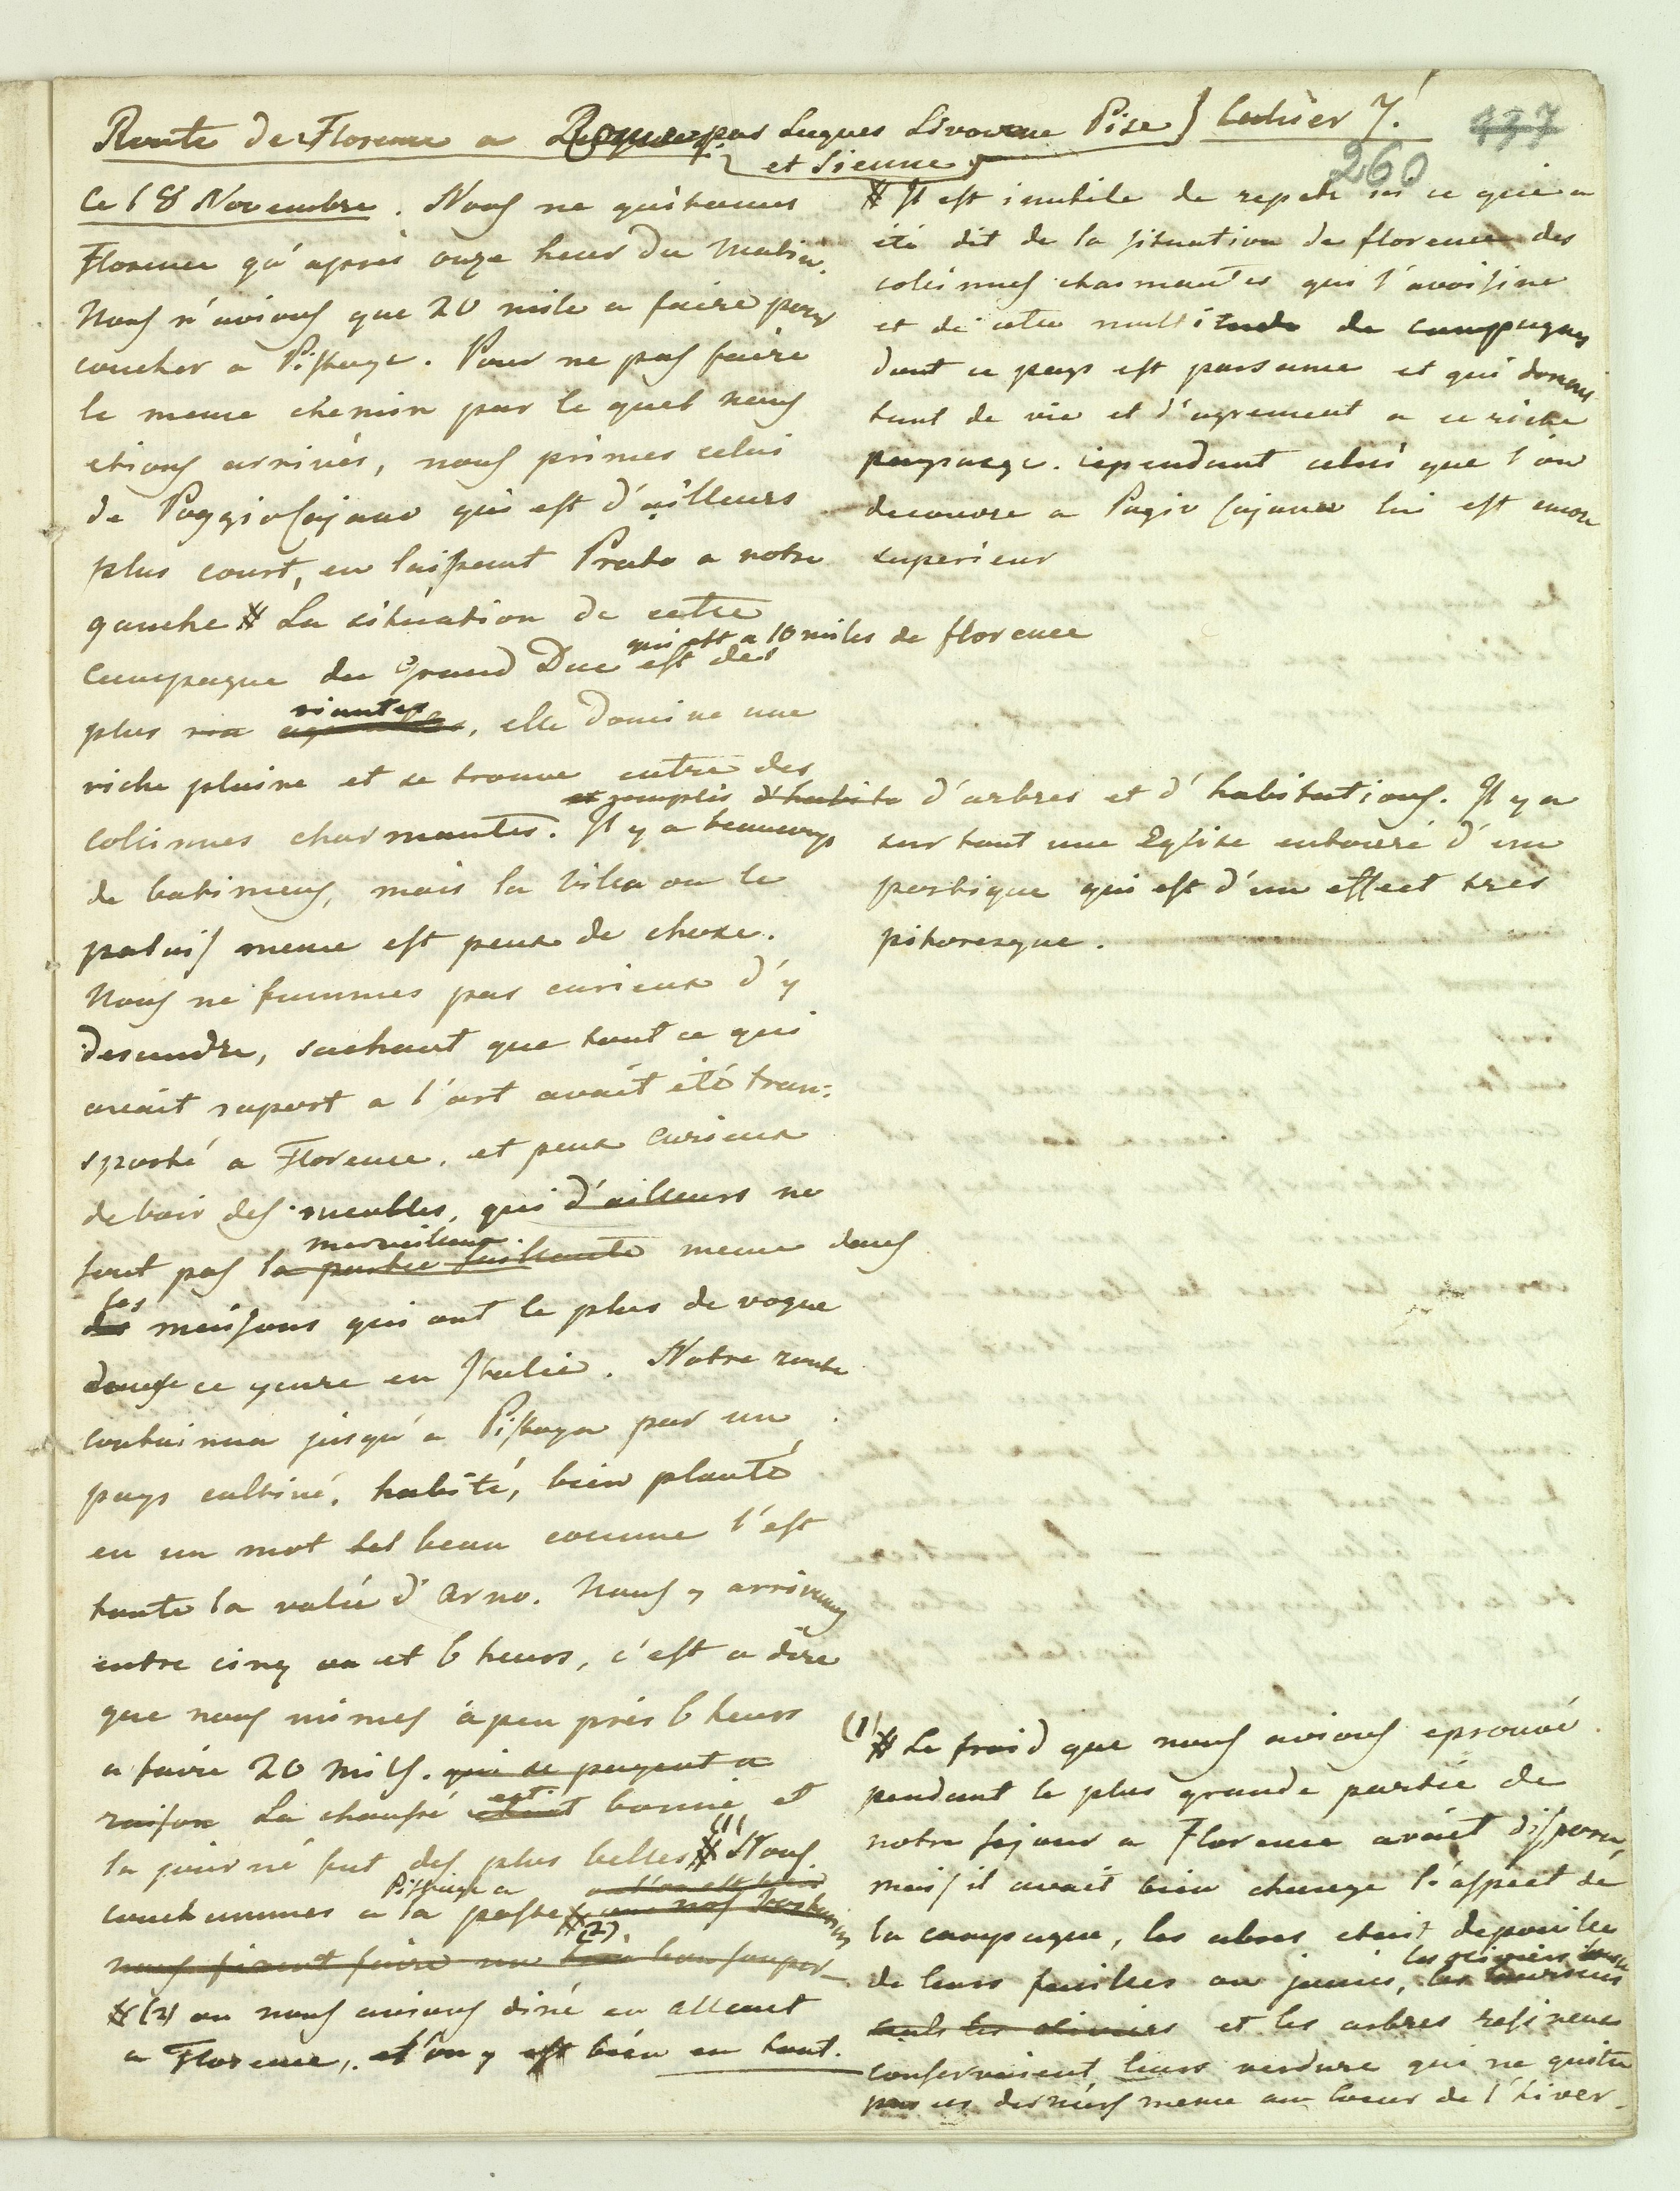 Route de Florence a Rome par Luques Livourne Pise } Cahier 7.
et Sienne
437
260
Ce 18 Novembre. Nous ne quitames
Florence qu'après onze heur du Matin.
Nous n'avions que 20 mile a faire pour
coucher a Pistoye. Pour ne pas faire
le meme chemin par le quel nous
etions arrivés, nous primes celui
de Poggio Cajano qui est d'ailleurs
plus court, en laissant Prato a notre
gauche # La situation de cette
qui est a 10 miles de florence
campagne du Grand Duc est des
plus ria riantes, elle domine une
riche plaine et se trouve entre des
et remplis d'habita d'arbres et d'habitations. Il y a
colinnes charmantes. Il y a beaucoup
de batimens, mais la villa ou le
palais meme est peux de chose.
Nous ne fummes pas curieux d'y
descendre, sachant que tout ce qui
avait raport a l'art avait été tran=
sporté a Florence, et peux curieux
de voir des meubles, qui d'ailleurs ne
merveilleux
sont pas la partie saillante meme dans
les
des maisons qui ont le plus de vogue
dans ce genre en Italie. Notre route
continua jusqu'a Pistoya par un
pays cultivé, habité, bien planté
en un mot tel beau comme l'est
toute la valée d'Arno. Nous y arrivames
entre cinq ou et 6 heurs, c'est a dire
que nous mimes à peu près 6 heurs
a faire 20 mils. qui se payent a
raison La chaussé est etait bonne et
la journé fut des plus belles # (1) Nous
Pistoye a
couchammes a la poste # (2)
nous firent faire un bon souper
# (2) ou nous avions diné en allant
a Florence, et l'on y est bien en tout.
# Il est inutile de repeter ici ce qui a
été dit de la situation de florence des
colinnes charmantes qui l'avoisine
et de cette multitude de campagnes
dont ce pays est parsamé et qui donnent
tant de vie et d'agrement a ce riche
paysage. cependant celui que l'on
decouvre a Pogio Cajano lui est encore
superieur
surtout une Eglise entouré d'un
portique qui est d'un effect tres
pitoresque.
(1) # Le froid que nous avions eprouvé
pendant le plus grande partie de
notre sejour a Florence avait disparu,
mais il avait bien changé l'aspect de
la campagne, les abres etait depouilée
de leurs feuilles ou jaunis, les oliviers
seuls les oliviers et les arbres resineux
conservaient leurs verdure qui ne quitte
pas ces derniers meme au coeur de l'hiver.